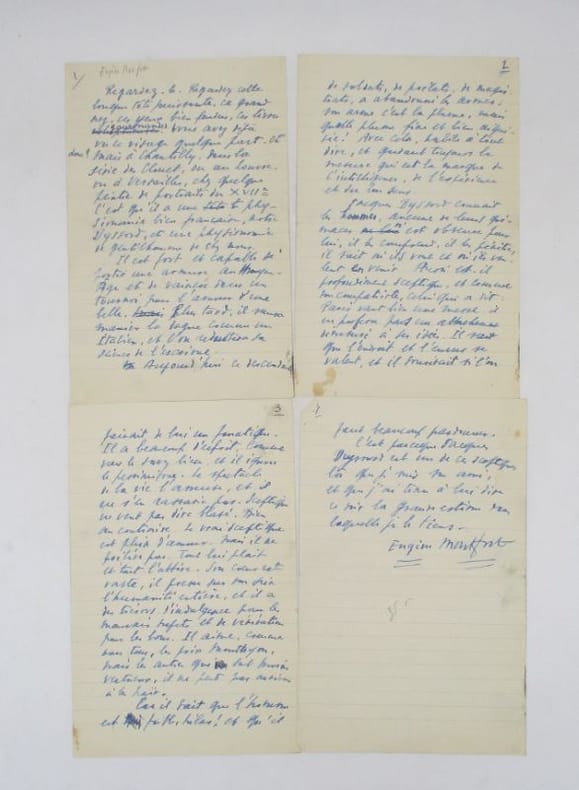 1
Eugène Montfort
Regardez-le. Regardez cette
longue tête puissante, ce grand
nez, ces yeux bien fendus, ces lèvres
gourmandes vous avez déjà
vu ce visage quelque part. et
donc! Mais à Chantilly, dans la
série des Clouet, ou au Louvre
ou à Versailles, chez quelque
peintre de portraits du XVIIe
C'est qu'il a une physionomie
bien française, notre
Dyssord, et une physionomie
de gentilhomme de chez nous.
Il est fort et capable de
porter une armure au Moyen-
Age et de vaincre dans un
tournoi pour l'amour d'une
belle. Plus tard, il saura
manier la dague comme un
Italien, et l'on redoutera
Aujourd'hui ce descendant
2
de soldats, de prélats, de magis
trats, a abandonné les armes.
Son arme c'est la plume, mais
quelle plume fine et bien aiguisée!
Avec cela, habile à tout
dire, et gardant toujours la
mesure qui est la marque de
l'intelligence, de l'expérience
et du bon sens.
Jacques Dyssord connait
les hommes, aucune de leurs gri-
maces n'est obscure pour
lui, il les comprend, il les pénètre,
il sait où ils vont et où ils veu-
lent en venir. Aussi est-il
profondément sceptique, et comme
son compatriote, celui qui a dit:
Paris vaut bien une messe, il
ne professe pas un attachement
démesuré à ses idées. Il sait que
l'endroit et l'envers se
valent, et il sourirait si l'on
3
faisait de lui un fanatique.
Il a beaucoup d'esprit, comme
vous le savez bien, et il ignore
le pessimisme. Le spectacle
de la vie l'amuse, et il
ne s'en rassasie pas. Sceptique
ne veut pas dire blasé. Bien
au contraire. Le vrai sceptique
est plein d'amour. Mais il ne
préfère pas. Tout lui plait
et tout l'attire. Son coeur est
vaste, il presse sur son sein
l'humanité entière, et il a
des trésors d'indulgence pour les
mauvais sujets et de vénération
pour les bons. Il aime, comme
nous tous, les prix Montyon,
mais les autres qui sont moins
vertueux, il ne peut pas arriver
à les haïr.
Car il sait que l'homme
est faible, hélas! et qu'il
4
faut beaucoup pardonner.
C'est parceque Jacques
Dyssord est un de ces sceptiques
là que je suis son ami,
et que j'ai tenu à leur dire
ce soir la grande estime dans
laquelle je le tiens.
Eugène Montfort